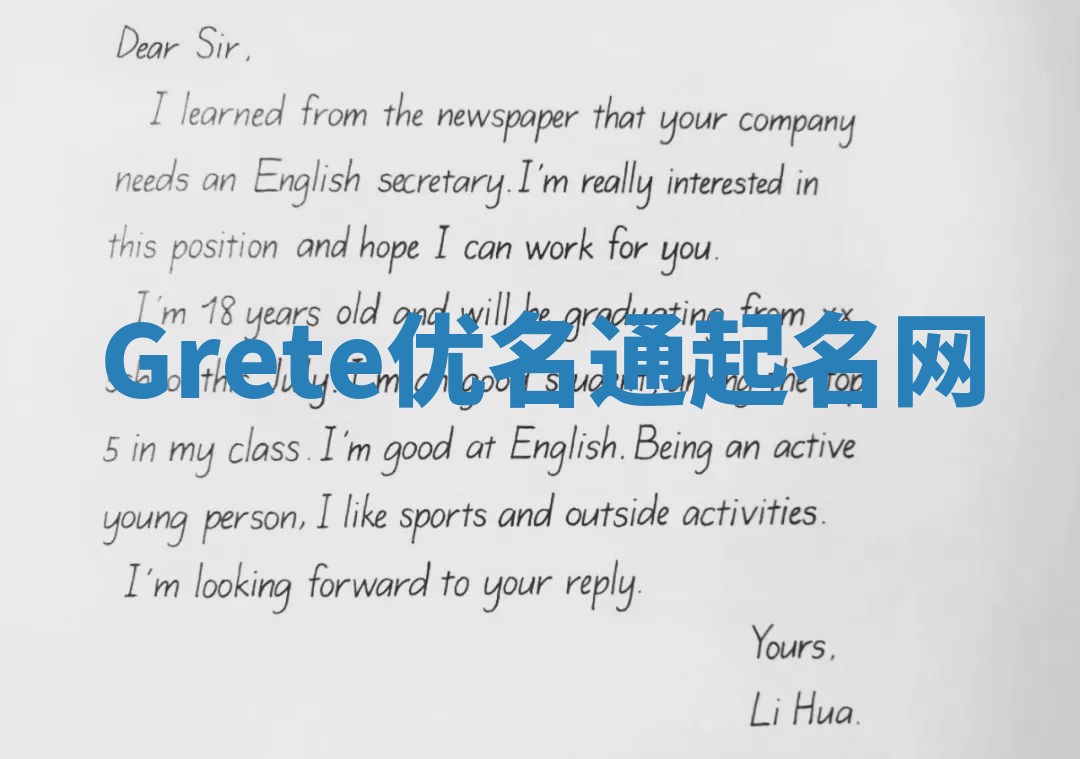 Dear Sir,
I learned from the newspaper that your company
needs an English secretary. I'm really interested in
this position and hope I can work for you.
I'm 18 years old and will be graduating from xx
Grete优名通起名网
school this July. I'm a good student, among the top
5 in my class. I'm good at English. Being an active
young person, I like sports and outside activities.
I'm looking forward to your reply.
Yours,
Li Hua.